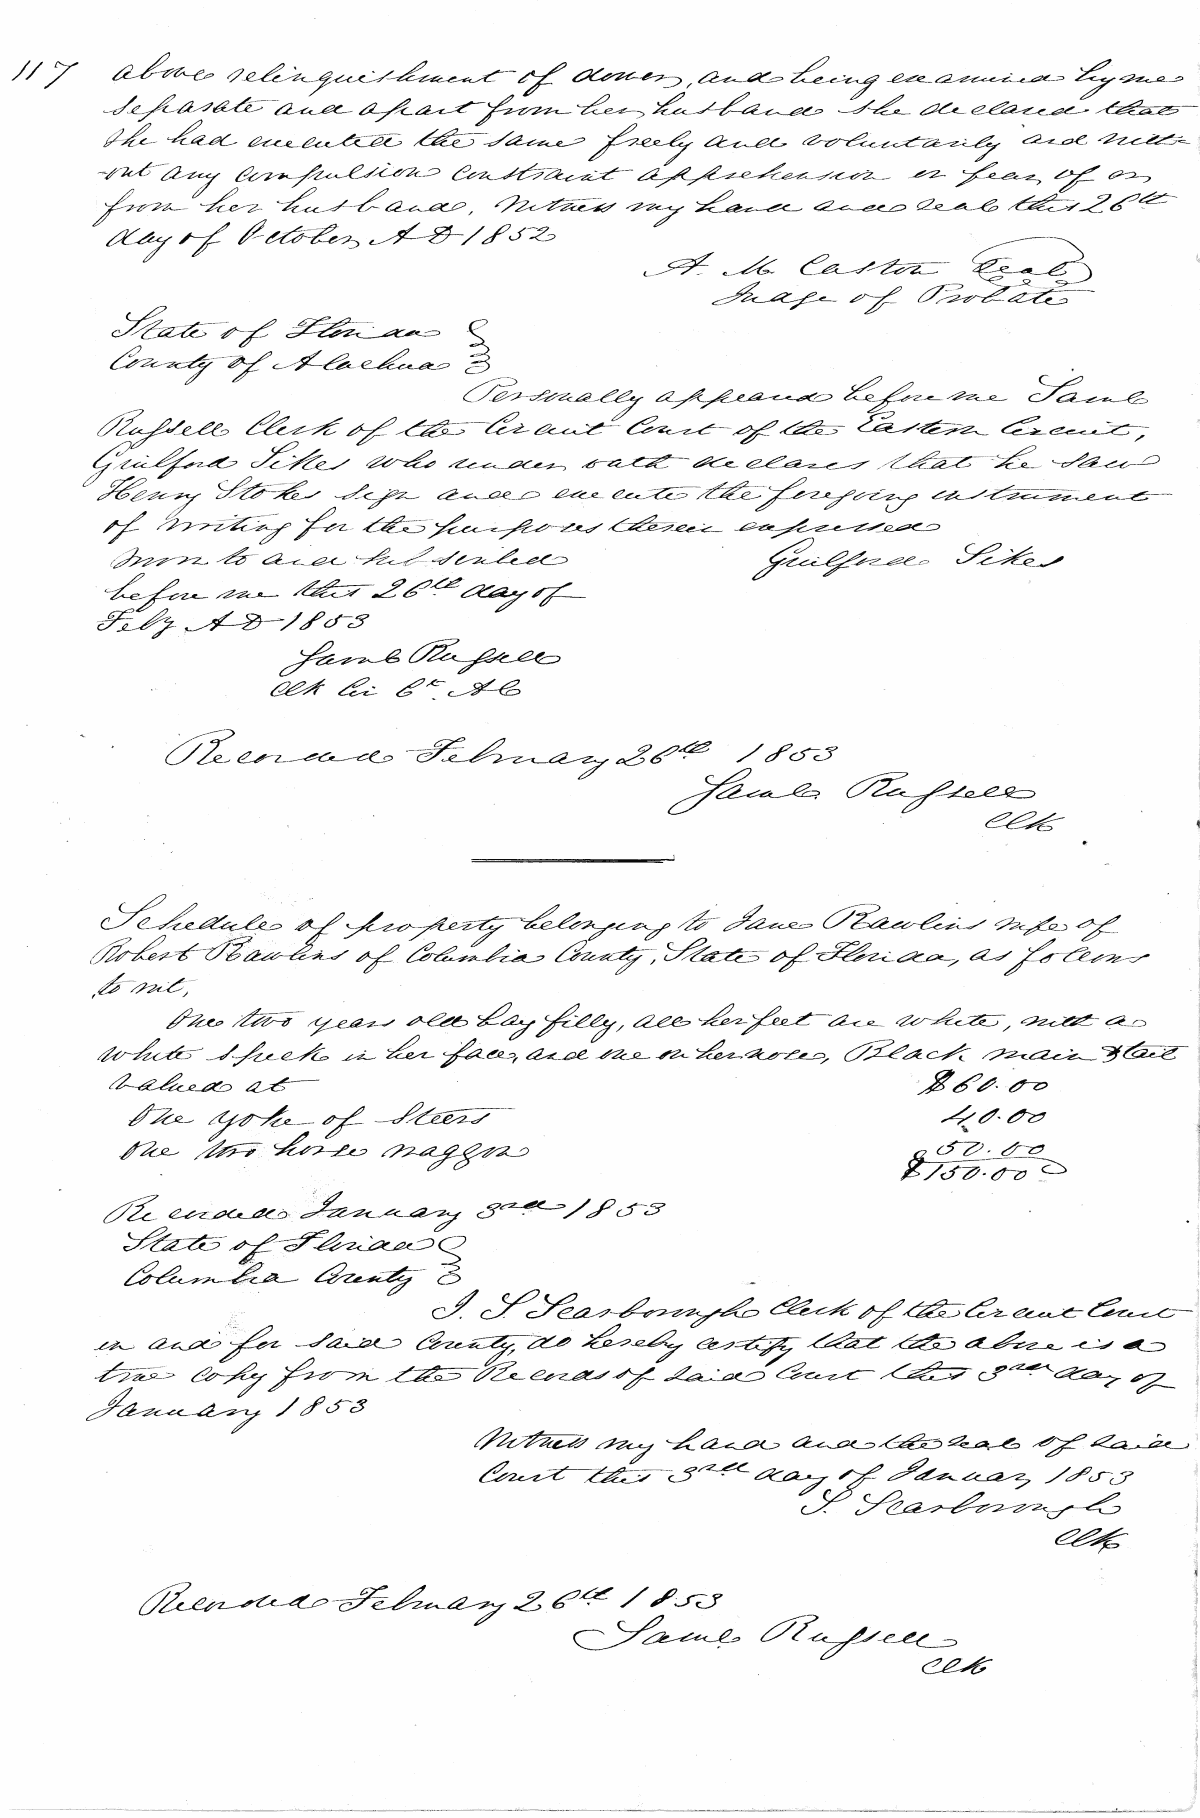 117
above relinquishment of dower, and being examined by me
separate and apart from her husband she declared that
she had executed the same freely and voluntarily and with-
out any compulsion constraint apprehension or fear of or
from her husband. Witness my hand and seal this 26th
day of October A D 1852
A. M. Caston Seal
Judge of Probate
State of Florida
County of Alachua
Personally appeared before me Saml
Russell Clerk of the Circuit Court of the Eastern Circuit,
Guilford Sikes who under oath declares that he saw
Henry Stokes sign and execute the foregoing instrument
of writing for the purposes therein expressed
Sworn to and subscribed
Guilford Sikes
before me this 26th day of
Feby A D 1853
Saml Russell
Clk Cir Ct. A C
Recorded February 26th 1853
Saml Russell
Clk
Schedule of property belonging to Jane Rawlins wife of
Robert Rawlins of Columbia County, State of Florida, as follows
to wit,
One two years old bay filly, all her feet are white, with a
white speck in her face, and one on her nose, Black main & tail
valued at $60.00
One yoke of Steers 40.00
One two horse waggon 50.00
$150.00
Recorded January 3rd 1853
State of Florida
Columbia County
I. S. Scarborough Clerk of the Circuit Court
in and for said County, do hereby certify that the above is a
true copy from the Records of said Court this 3rd day of
January 1853
Witness my hand and the seal of said
Court this 3rd day of January 1853
S. Scarborough
Clk
Recorded February 26th 1853
Saml Russell
Clk